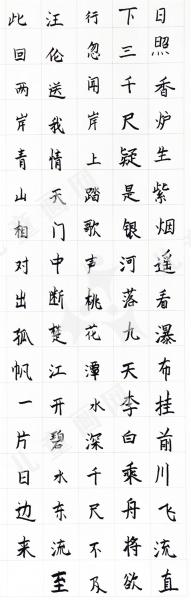 日照香炉生紫烟遥看瀑布桂前川飞流直
下三千尺疑是银河落九天李白乘舟将欲
行忽闻岸上踏歌声桃花潭水深千尺不及
汪伦送我情天门中断楚江开碧水东流至
此回两岸青山相对出孤帆一片日边来